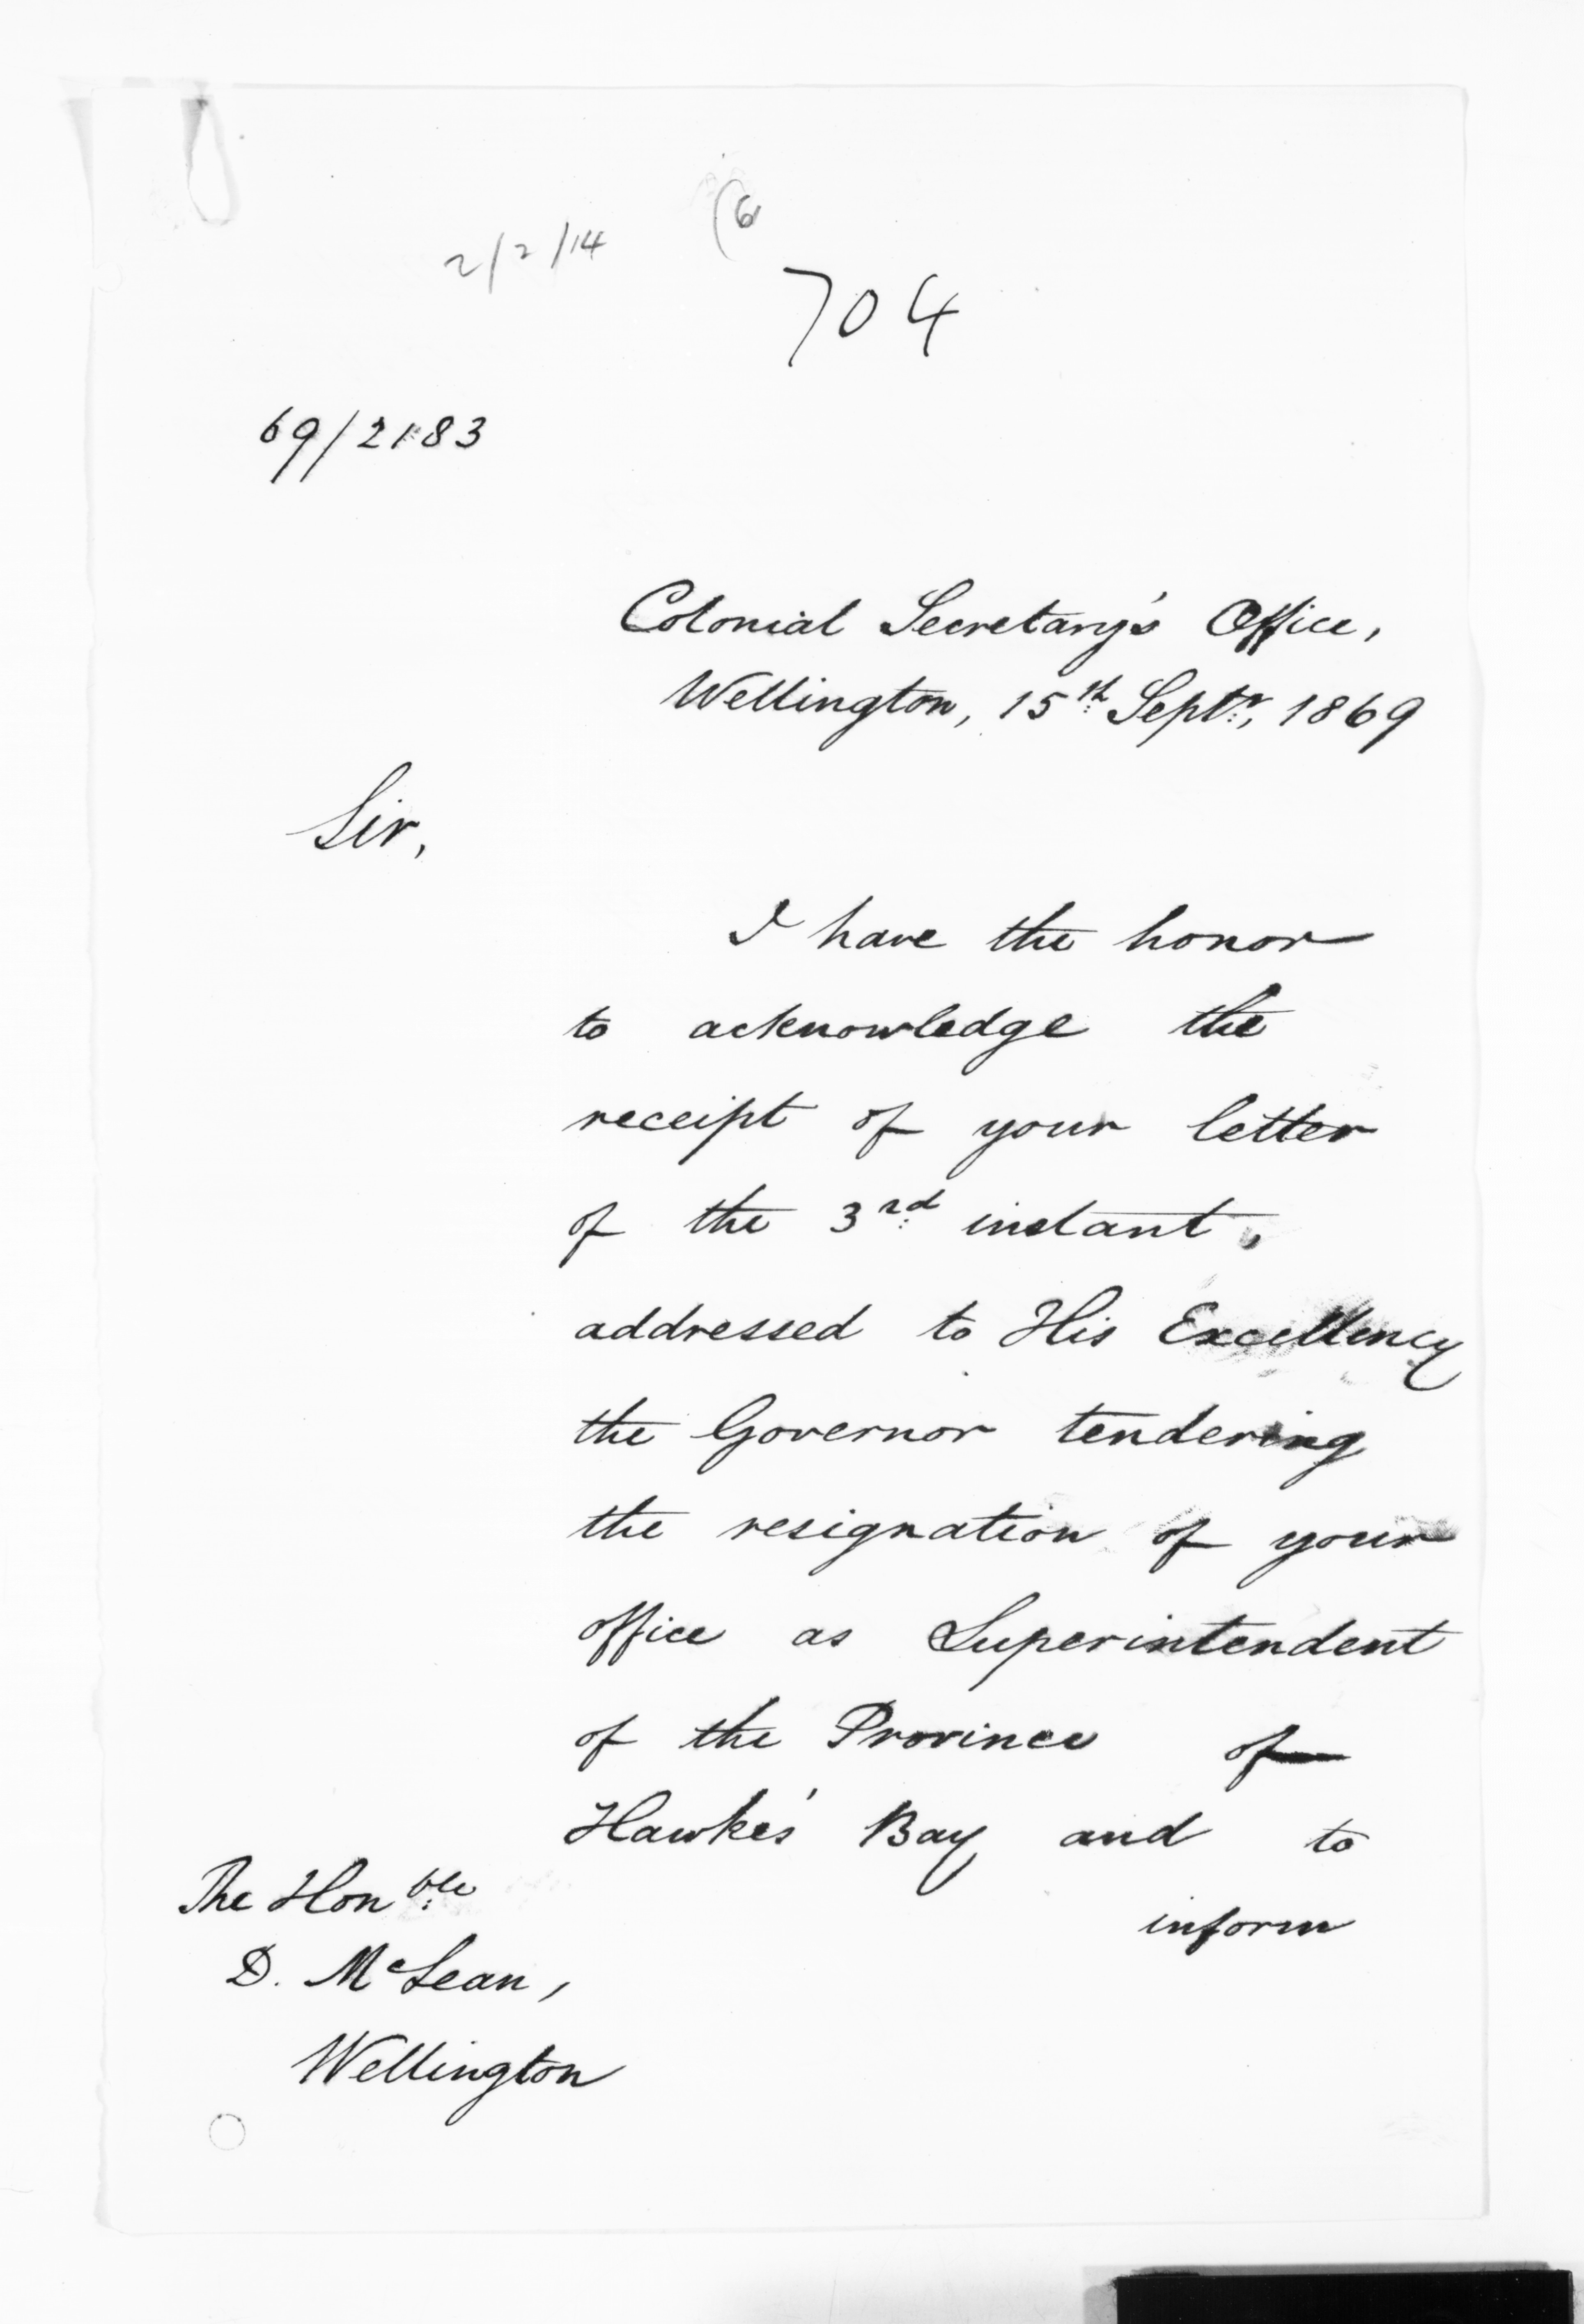 (6
2/2/14
704
69/2183
Colonial Secretary's Office,
Wellington, 15th Septr, 1869
Sir,
I have the honor
to acknowledge the
receipt of your letter
of the 3rd instant,
addressed to His Excellency
the Governor tendering
the resignation of your
office as Superintendent
of the Province of
Hawke's Bay and to
inform
The Honble
D. McLean,
Wellington